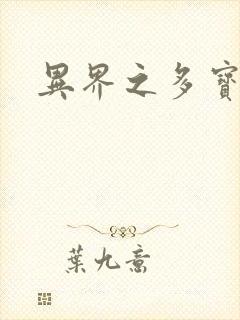 異界之多寶
葉九喬